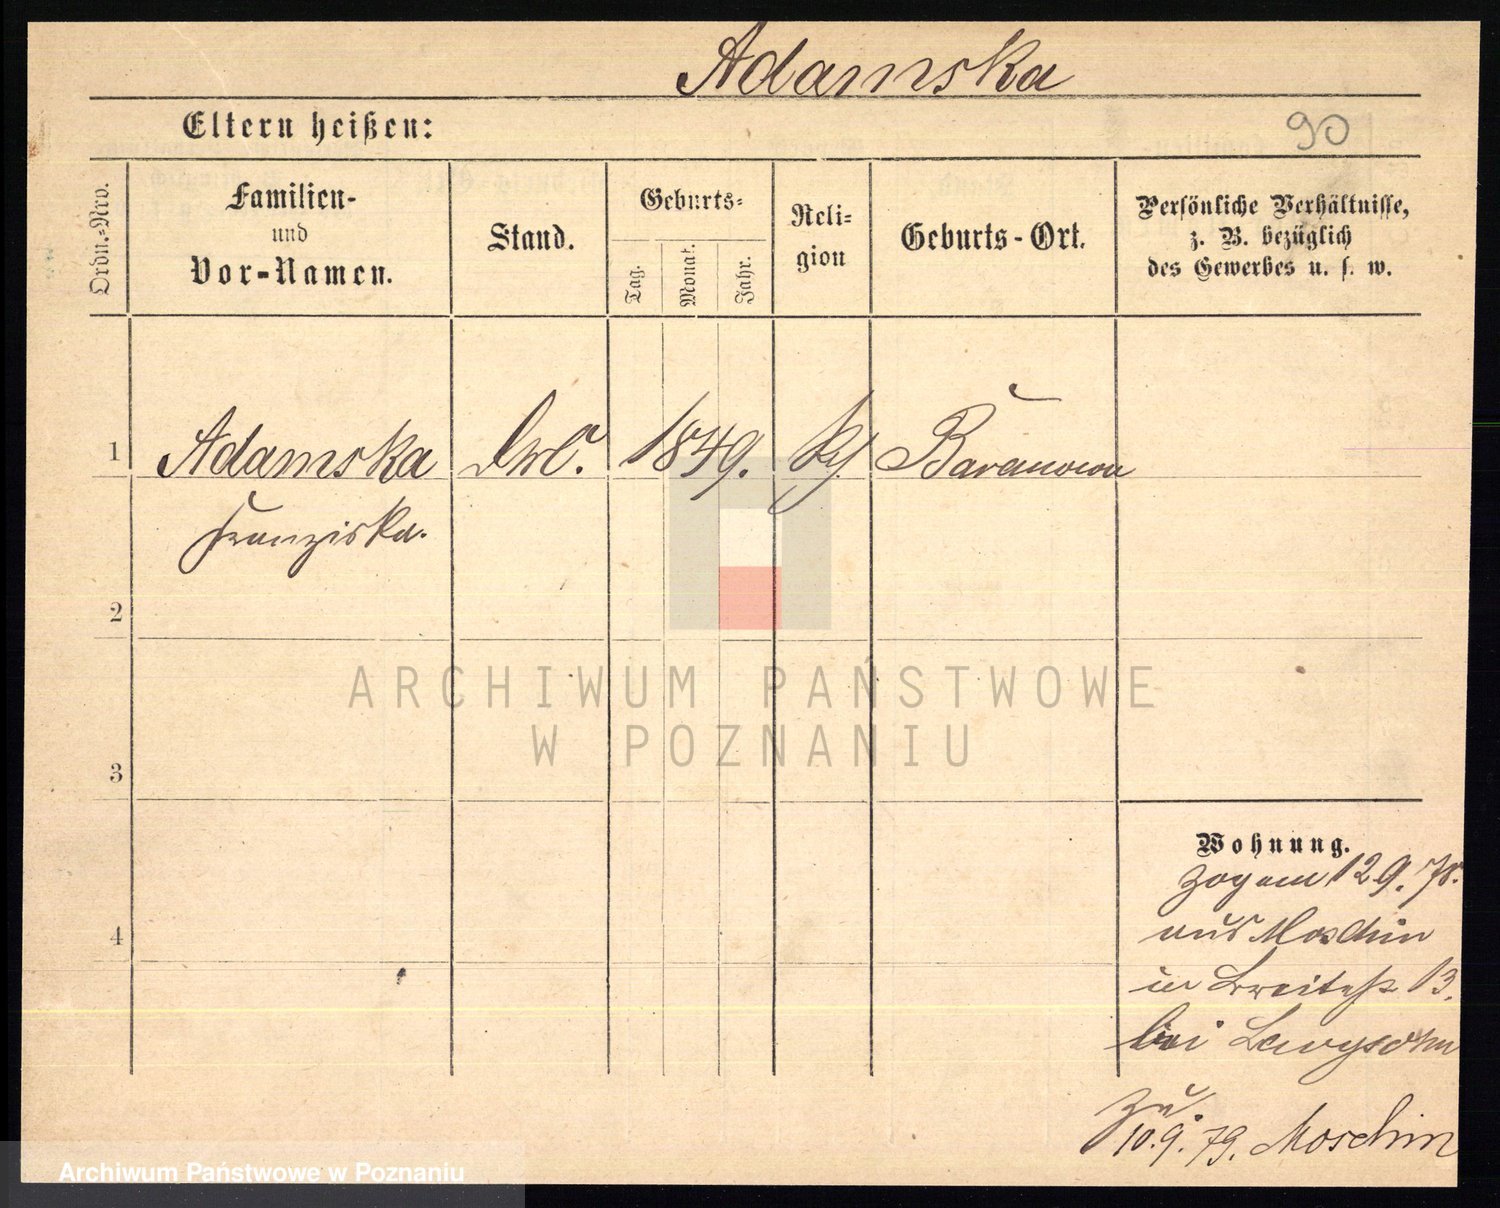 Adamska
Eltern heißen:
90
Ordn.-Nro.
Familien-
und
Vor-Namen.
Stand.
Geburts-
Tag.
Monat.
Jahr.
Reli-
gion
Geburts-Ort.
Persönliche Verhältnisse,
z. B. bezüglich
des Gewerbes u. s. w.
1
Adamska
1849.
Baranowo
Franziska.
2
ARCHIWUM PAŃSTWOWE
W POZNANIU
3
Wohnung.
zog am 12 9. 78.
4
aus Moschin
in Breitestr 13.
bei
zu.
10.9.79. Moschin
Archiwum Państwowe w Poznaniu